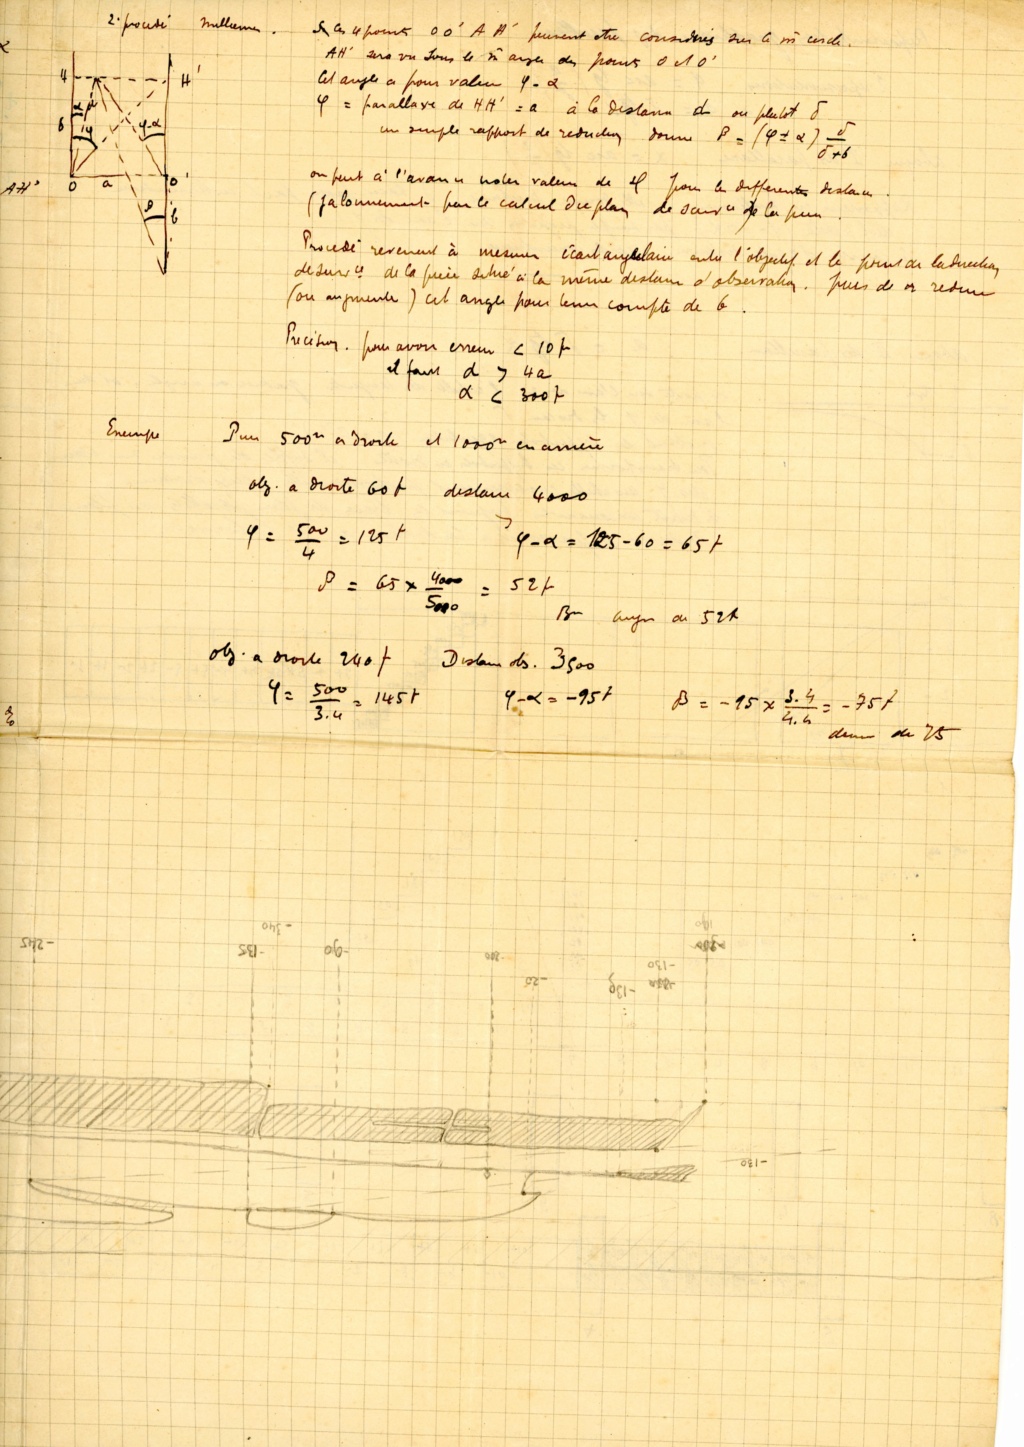 2e procédé millièmes. Si les 4 points O O' A H' peuvent etre considérés sur le m cercle.
AH' sera vu sous le m angle des points O et O'
Cet angle a pour valeur φ - α
φ = parallaxe de HH' = a à la distance d ou plutot δ
un simple rapport de reduction donne β = (φ ± α) δ / δ+b
H H' α φ φ-α b O a O' β b
AH'
on peut à l'avance noter valeur de φ pour les differentes distances.
(jalonnement par le calcul du plan de surv ce de la pièce.
Procédé revenant à mesurer écart angulaire entre l'objectif et le point de la direction
de surv ce de la pièce situé à la même distance d'observation. puis de reduire
(ou augmenter) cet angle pour tenir compte de b.
Precision. pour avoir erreur < 10 t
il faut d > 4a
α < 300 t
Exemple Pièce 500m a droite et 1000m en arrière
obj. a droite 60 t distance 4000
φ = 500/4 = 125 t φ-α = 125-60 = 65 t
β = 65 × 4000/5000 = 52 t
Bie augm de 52 t
obj. a droite 240 t Distance obs. 3500
φ = 500/3.4 = 145 t φ-α = -95 t β = -95 × 3.4/4.4 = -75 t
dimin de 75
-340
-245 -135 -90 -20
-130
-130
-130